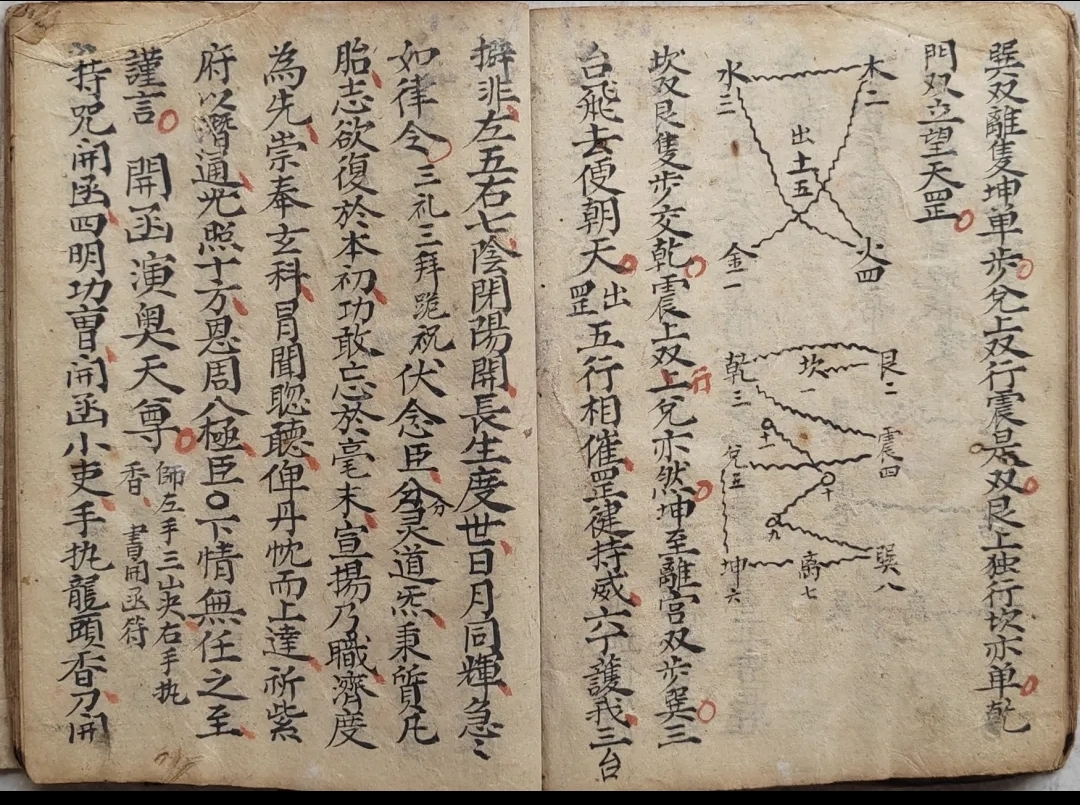 巽双離隻坤单步兊上双行震是双艮上独行坎亦单乾
門双立望天罡
木二
水三
出
土五
火四
金一
艮二
坎一
乾三
震四
十一
兊五
十
九
巽八
离七
坤六
坎双艮隻步交乾震上双上行兊亦然坤至離宮双步巽三
台飛去便朝天出罡五行相催罡徤持威六丁護我三台
擗非左五右七陰閉陽開長生度世日月同輝急〻
如律令三礼三拜跪祝伏念臣分灵道炁秉質凡
胎志欲復於本初功敢忘於毫末宣揚乃職濟度
為先崇奉玄科冐聞聡聽俾丹忱而上達祈紫
府以潛通光照十方恩周八極臣○下情無任之至
謹言 開函演奥天尊 師左手三山夬右手执
香 書開函符
持咒開函四明功曺開函小吏手执龍頭香刀開